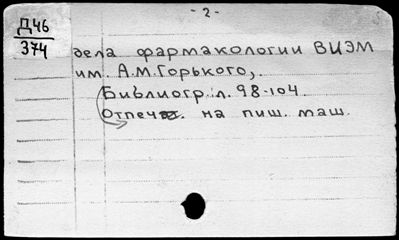 - 2 -
Д46
374
дела фармакологии ВИЭМ
им. А.М.Горького,.
Библиогр. л. 98-104
Отпечат. на пиш. маш.